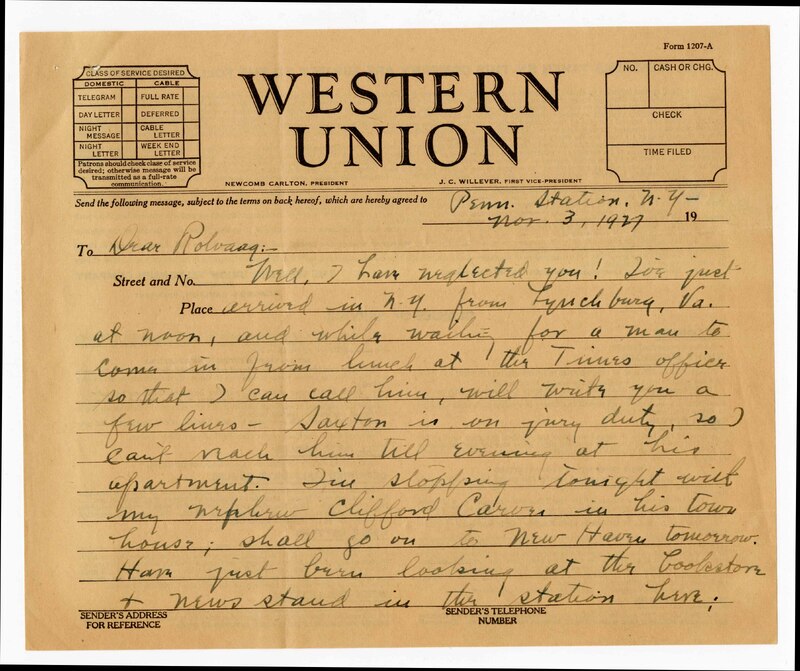 Form 1207-A
CLASS OF SERVICE DESIRED
DOMESTIC CABLE
TELEGRAM FULL RATE
DAY LETTER DEFERRED
NIGHT MESSAGE CABLE LETTER
NIGHT LETTER WEEK END LETTER
Patrons should check class of service
desired; otherwise message will be
transmitted as a full-rate
communication.
WESTERN
UNION
NEWCOMB CARLTON, PRESIDENT J. C. WILLEVER, FIRST VICE-PRESIDENT
NO. CASH OR CHG.
CHECK
TIME FILED
Send the following message, subject to the terms on back hereof, which are hereby agreed to
Penn. Station, N.Y—
Nov. 3, 1927 19
To Dear Rolvaag:—
Street and No. Well, I have neglected you! I've just
Place arrived in N.Y. from Lynchburg, Va.
at noon, and while waiting for a man to
come in from lunch at the Times office
so that I can call him, will write you a
few lines — Saxton is on jury duty, so I
can't reach him till evening at his
apartment. I'm stopping tonight with
my nephew Clifford Carver in his town
house; shall go on to New Haven tomorrow.
Have just been looking at the bookstore
+ news stand in the station here;
SENDER'S ADDRESS
FOR REFERENCE
SENDER'S TELEPHONE
NUMBER